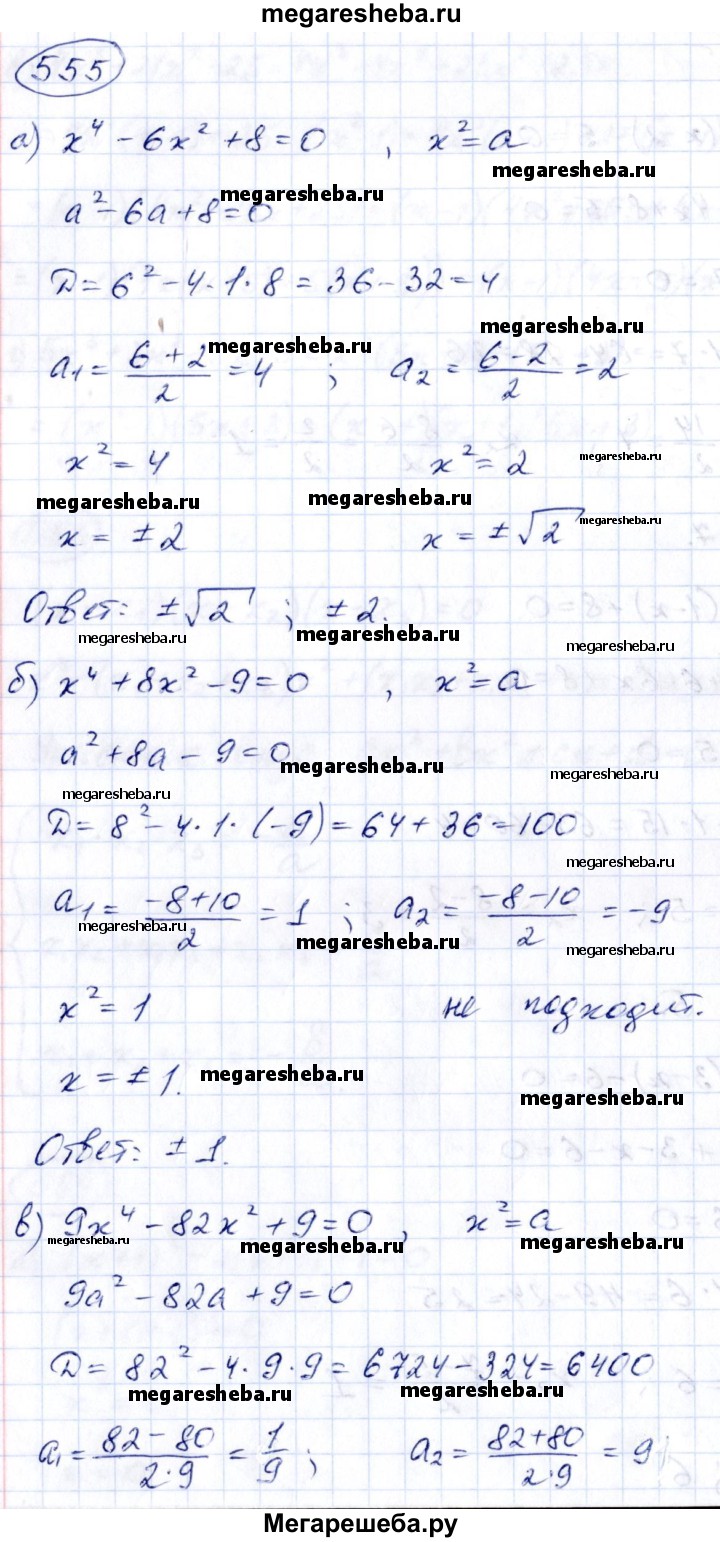 megaresheba.ru
555
а) x⁴ - 6x² + 8 = 0 , x² = a
megaresheba.ru
megaresheba.ru
a² - 6a + 8 = 0
D = 6² - 4·1·8 = 36 - 32 = 4
megaresheba.ru
megaresheba.ru
a₁ = (6+2)/2 = 4 ; a₂ = (6-2)/2 = 2
x² = 4 x² = 2 megaresheba.ru
megaresheba.ru megaresheba.ru
megaresheba.ru
x = ±2 x = ±√2
Ответ: ±√2 ; ±2.
megaresheba.ru megaresheba.ru megaresheba.ru
б) x⁴ + 8x² - 9 = 0 , x² = a
a² + 8a - 9 = 0
megaresheba.ru megaresheba.ru
megaresheba.ru
D = 8² - 4·1·(-9) = 64 + 36 = 100
megaresheba.ru
a₁ = (-8+10)/2 = 1 ; a₂ = (-8-10)/2 = -9
megaresheba.ru megaresheba.ru megaresheba.ru
x² = 1 не подходит.
x = ±1. megaresheba.ru
megaresheba.ru
Ответ: ±1.
в) 9x⁴ - 82x² + 9 = 0 , x² = a
megaresheba.ru megaresheba.ru megaresheba.ru
9a² - 82a + 9 = 0
D = 82² - 4·9·9 = 6724 - 324 = 6400
megaresheba.ru megaresheba.ru
a₁ = (82-80)/(2·9) = 1/9 ; a₂ = (82+80)/(2·9) = 9
Мегарешеба.ру